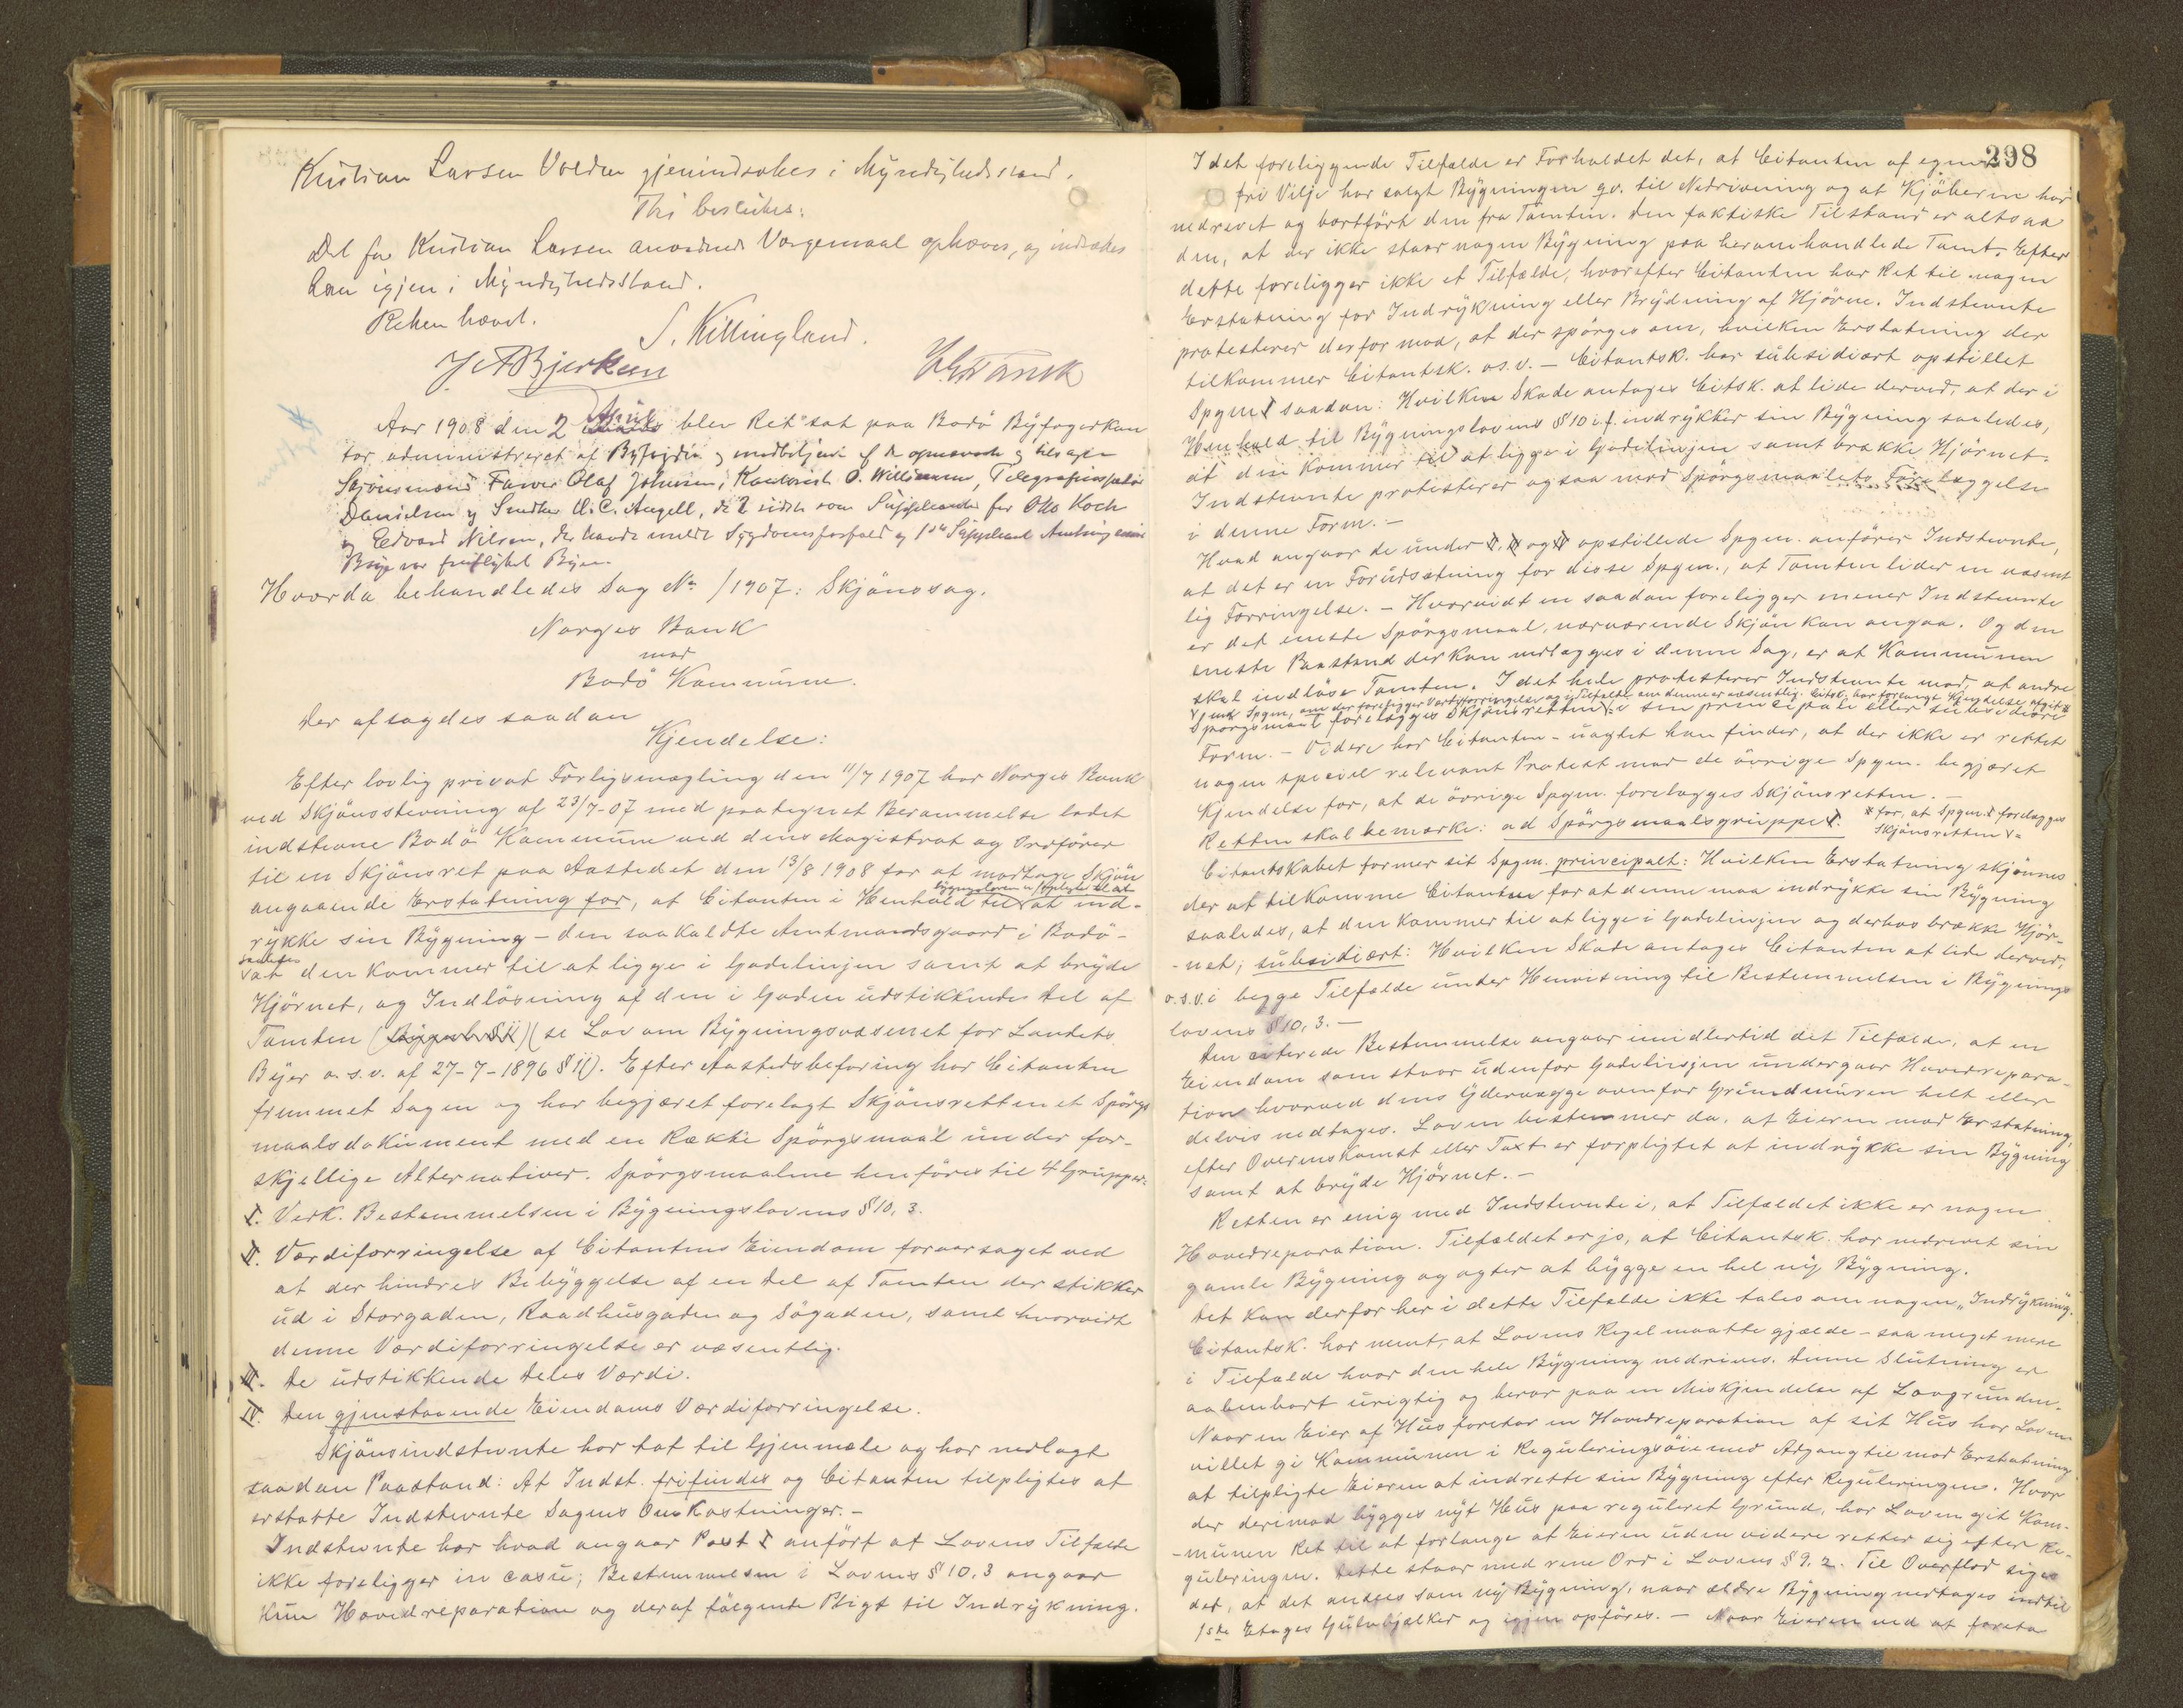 Kristian Larsen Volden gjenindsættes i Myndighedsstand.
Thi besluttes:
Det for Kristian Larsen anordnede Værgemaal ophæves, og indsættes
han igjen i Myndighedsstand.
Retten hævet.
S. Killingland.
J A Bjerkan
Aar 1908 den 2 April blev Ret sat paa Bodö Byfogedkon
tor administreret af Byfogden og medbetjent af de opnævnte og tilsagte
Skjönsmænd Farver Olaf Johnsen, Kontorist O. Willumsen, Telegrafinspektör
Danielsen og Snedker O. C. Angell, de 2 sidste som Suppleanter for Otto Koch
og Edvard Nilsen, der havde meldt Sygdomsforfald og 1ste Suppleant Amtsingeniör
Buye var fraflyttet Byen.
Hvorda behandledes Sag No /1907: Skjönssag.
Norges Bank
mod
Bodö Kommune.
Der afsagdes saadan
Kjendelse:
Efter lovlig privat Forligsmægling den 11/7 1907 har Norges Bank
ved Skjönsstevning af 23/7-07 med paategnet Berammelse ladet
indstevne Bodö Kommune ved dens Magistrat og Ordförer
til en Skjönsret paa Aastedet den 13/8 1908 for at modtage Skjön
angaaende Erstatning for, at Citanten i Henhold til bygningsloven er forpligtet til at ind-
rykke sin Bygning – den saakaldte Amtmandsgaard i Bodö –
saaledes at den kommer til at ligge i Gadelinjen samt at bryde
Hjörnet, og Indlösning af den i Gaden udstikkende Del af
Tomten (se Lov om Bygningsvæsenet for Landets
Byer o. s. v. af 27-7-1896 § 11). Efter Aastedsbefaring har Citanten
fremmet Sagen og har begjæret forelagt Skjönsretten et Spörgs
maalsdokument med en Række Spörgsmaal under for-
skjellige Alternativer. Spörgsmaalene henföres til 4 Grupper:
I. Vedk. Bestemmelsen i Bygningslovens § 10, 3.
II. Værdiforringelse af Citantens Eiendom foraarsaget ved
at der hindres Bebyggelse af en Del af Tomten der stikker
ud i Storgaden, Raadhusgaden og Sögaden, samt hvorvidt
denne Værdiforringelse er væsentlig.
III. De udstikkende Deles Værdi.
IV. Den gjenstaaende Eiendoms Værdiforringelse.
Skjönsindstevnte har tat til Gjenmæle og har nedlagt
saadan Paastand: At Indst. frifindes og Citanten tilpligtes at
erstatte Indstevnte Sagens Omkostninger. –
Indstevnte har hvad angaar Post I anfört at Lovens Tilfælde
ikke foreligger in casu; Bestemmelsen i Lovens § 10, 3 angaar
kun Hovedreparation og deraf fölgende Pligt til Indrykning.
298
I det foreliggende Tilfælde er Forholdet det, at Citanten af egen
fri Vilje har solgt Bygningen qv. til Nedrivning og at Kjöberen har
nedrevet og bortfört den fra Tomten. Den faktiske Tilstand er altsaa
den, at der ikke staar nogen Bygning paa heromhandlede Tomt. Efter
dette foreligger ikke et Tilfælde, hvorefter Citanten har Ret til nogen
Erstatning for Indrykning eller Brydning af Hjörne. Indstevnte
protesterer derfor mod, at der spörges om, hvilken Erstatning der
tilkommer Citantsk. os.v. – Citantsk. har subsidiært opstillet
Spgm. I saadan: Hvilken Skade antages Citsk. at lide derved, at der i
Henhold til Bygningslovens § 10 i.f. indrykker sin Bygning saaledes,
at den kommer til at ligge i Gadelinjen samt brække Hjörnet.
Indstevnte protesterer ogsaa mod Spörgsmaalets Forelæggelse
i denne Form. –
Hvad angaar de under II, III og IV opstillede Spgm. anförer Indstevnte,
at det er en Forudsætning for disse Spgm., at Tomten lider en væsent
lig Forringelse. – Hvorvidt en saadan foreligger mener Indstevnte
er det eneste Spörgsmaal, nærværende Skjön kan angaa. Og den
eneste Paastand der kan nedlægges i denne Sag, er at Kommunen
skal indlöse Tomten. I det hele protesterer Indstevnte mod, at andre
end Spgm. om der foreligger Værdiforringelse og i Tilfælde om denne er væsentlig. Citsk. har forlangt Kjendelse afgit
Spörgsmaal forelægges Skjönsretten i sin principale eller subsidiære
Form. – Videre har Citanten – uagtet han finder, at der ikke er reist
nogen speciel relevant Protest mod de övrige Spgm. begjæret
Kjendelse for, at de övrige Spgm. forelægges Skjönsretten. –
* for, at Spgm. I forelægges
Skjönsretten
Retten skal bemærke: ad Spörgsmaalsgruppe I.
Citantskabet former sit Spgm. principalt: Hvilken Erstatning skjönnes
der at tilkomme Citanten for at denne maa indrykke sin Bygning
saaledes, at den kommer til at ligge i Gadelinjen og derhos brække Hjör-
-net; subsidiært: Hvilken Skade antages Citanten at lide derved,
o.s.v. i begge Tilfælde under Henvisning til Bestemmelsen i Bygnings
lovens § 10, 3. –
Den citerede Bestemmelse angaar imidlertid det Tilfælde, at en
Eiendom som staar udenfor Gadelinjen undergaar Hovedrepara-
tion hvorved dens Ydervægge ovenfor Grundmuren helt eller
delvis nedtages. Loven bestemmer da, at Eieren mod Erstatning,
efter Overenskomst eller Taxt er forpligtet at indrykke sin Bygning
samt at bryde Hjörnet. –
Retten er enig med Indstevnte i, at Tilfældet ikke er nogen
Hovedreparation. Tilfældet er jo, at Citantsk. har nedrevet sin
gamle Bygning og agter at bygge en hel ny Bygning.
Det kan derfor her i dette Tilfælde ikke tales om nogen „Indrykning.
Citantsk. har ment, at Lovens Regel maatte gjælde – saa meget mere
i Tilfælde hvor den hele Bygning nedrives. Denne Slutning er
aabenbart urigtig og beror paa en Miskjendelse af Lovgrunden.
Naar en Eier af Hus foretar en Hovedreparation af sit Hus har Loven
villet gi Kommunen i Reguleringsöiemed Adgang til mod Erstatning
at tilpligte Eieren at indrette sin Bygning efter Reguleringen. Hvor
der derimod bygges nyt Hus paa reguleret Grund, har Loven git Kom-
-munen Ret til at forlange at Eieren uden videre retter sig efter Re-
guleringen. Dette staar med rene Ord i Lovens § 9, 2. Til Overflod siges
det, at det ansees som ny Bygning, naar ældre Bygning nedtages indtil
1ste Etages Gulvbjælker og igjen opföres. – Naar Eieren ved at foreta